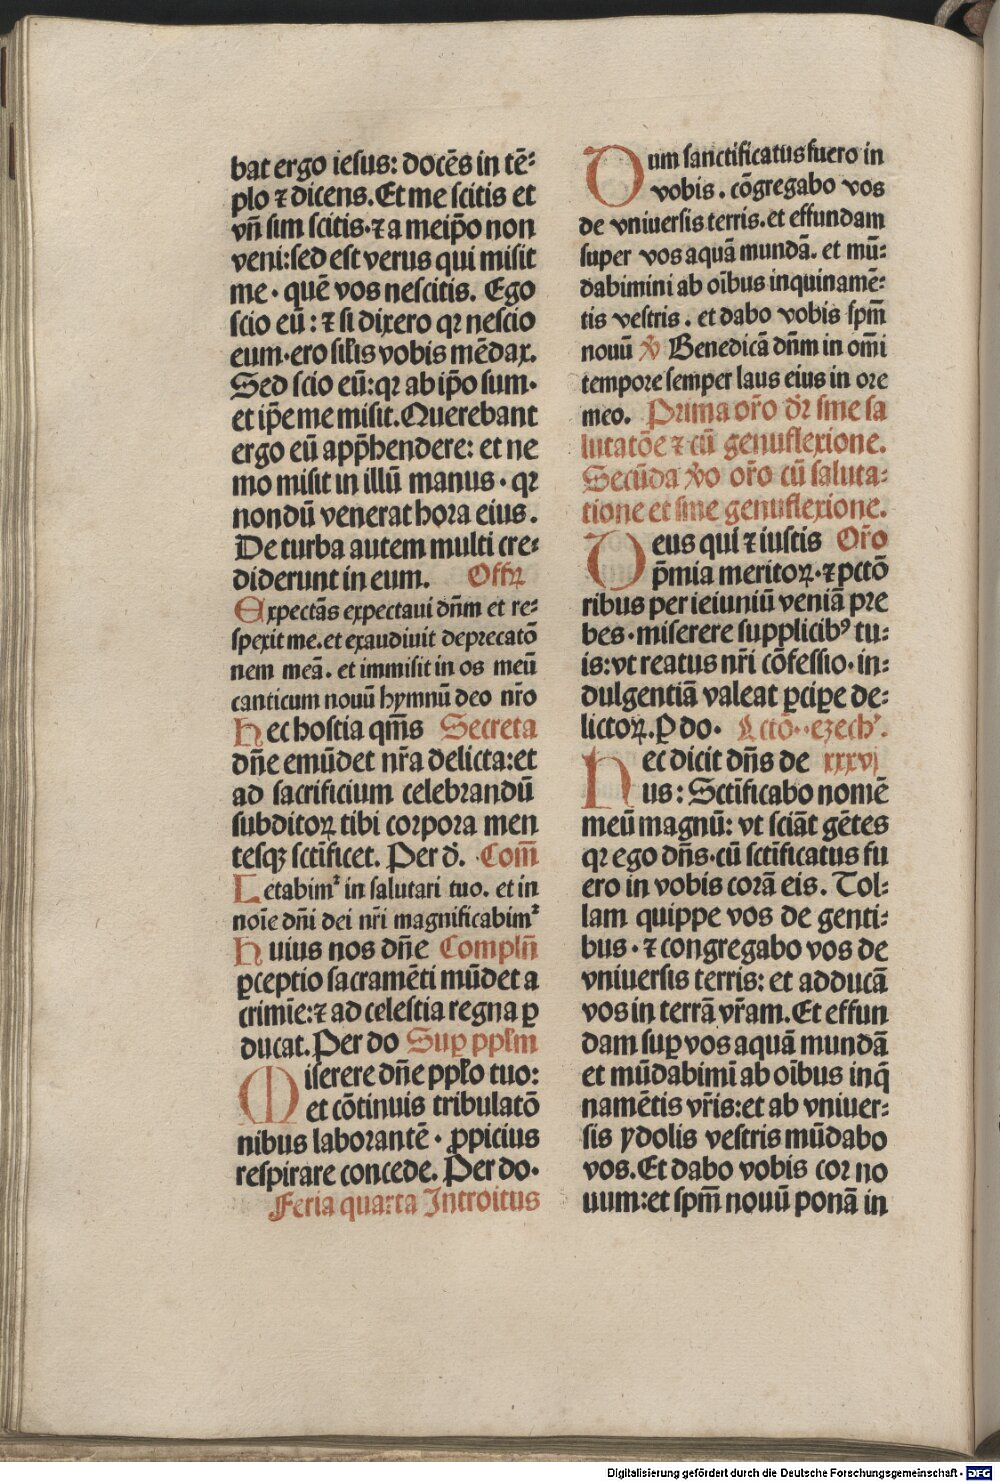 bat ergo iesus: docēs in tē⸗
plo ⁊ dicens. Et me scitis et
vn̄ sim scitis· ⁊ a meip̄o non
veni: sed est verus qui misit
me · quē vos nescitis. Ego
scio eū : ⁊ si dixero qꝛ nescio
eum· ero sil̄is vobis mēdax.
Sed scio eū: qꝛ ab ip̄o sum·
et ip̄e me misit. Querebant
ergo eū app̄hendere: et ne
mo misit in illū manus · qꝛ
nondū venerat hora eius.
De turba autem multi cre⸗
diderunt in eum. Offꝝ
Expectās expectaui dn̄m et re⸗
spexit me. et exaudiuit deprecatō
nem meā. et immisit in os meū
canticum nouū hymnū deo nr̄o
hec hostia qm̄s Secreta
dn̄e emūdet nr̄a delicta: et
ad sacrificium celebrandū
subditoꝝ tibi corpora men
tesqꝫ sct̄ificet. Per d̄. Com̄
Letabimᷣ in salutari tuo. et in
noīe dn̄i dei nr̄i magnificabimᷣ
huius nos dn̄e Compln̄
ꝑceptio sacramēti mūdet a
crimīe: ⁊ ad celestia regna ꝑ
ducat. Per do Suꝑ ppl̄m
Miserere dn̄e ppl̄o tuo:
et cōtinuis tribulatō
nibus laborantē · ꝓpicius
respirare concede. Per do·
Feria quarta Introitus
Dum sanctificatus fuero in
vobis. cōgregabo vos
de vniuersis terris. et effundam
super vos aquā mundā. et mū⸗
dabimini ab oībus inquinamē⸗
tis vestris. et dabo vobis spm̄
nouū ℣ Benedicā dn̄m in om̄i
tempore semper laus eius in ore
meo. Prima or̄o d̄r sine sa
lutatōe ⁊ cū genuflexione.
Secūda v̄o or̄o cū saluta⸗
tione et sine genuflexione.
Deus qui ⁊ iustis Or̄o
p̄mia meritoꝝ· ⁊ pctō
ribus per ieiuniū veniā pre
bes· miserere supplicibꝰ tu⸗
is: vt reatus nr̄i cōfessio· in⸗
dulgentiā valeat ꝑciꝑe de⸗
lictoꝝ. ꝑ do· Lctō· ezechᷣ.
hec dicit dn̄s de xxxvj
us: Sct̄ificabo nomē
meū magnū: vt sciāt gētes
qꝛ ego dn̄s· cū sct̄ificatus fu
ero in vobis corā eis. Tol⸗
lam quippe vos de genti⸗
bus · ⁊ congregabo vos de
vniuersis terris: et adducā
vos in terrā vr̄am. Et effun
dam suꝑ vos aquā mundā
et mūdabimī ab oībus inq̄
namētis vr̄is: et ab vniuer⸗
sis ydolis vestris mūdabo
vos. Et dabo vobis cor no
uum: et spm̄ nouū ponā in
Digitalisierung gefördert durch die Deutsche Forschungsgemeinschaft - DFG